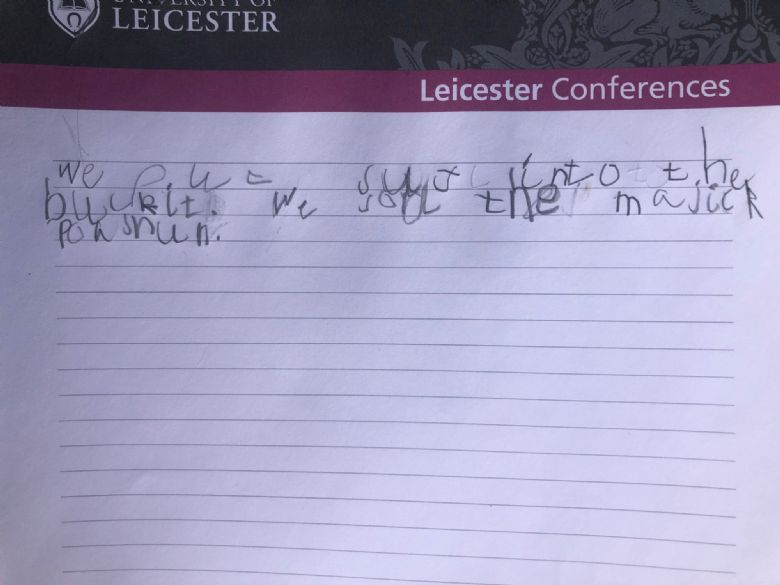 UNIVERSITY OF
LEICESTER
Leicester Conferences
we into the
buckit. we the majick
poashun.